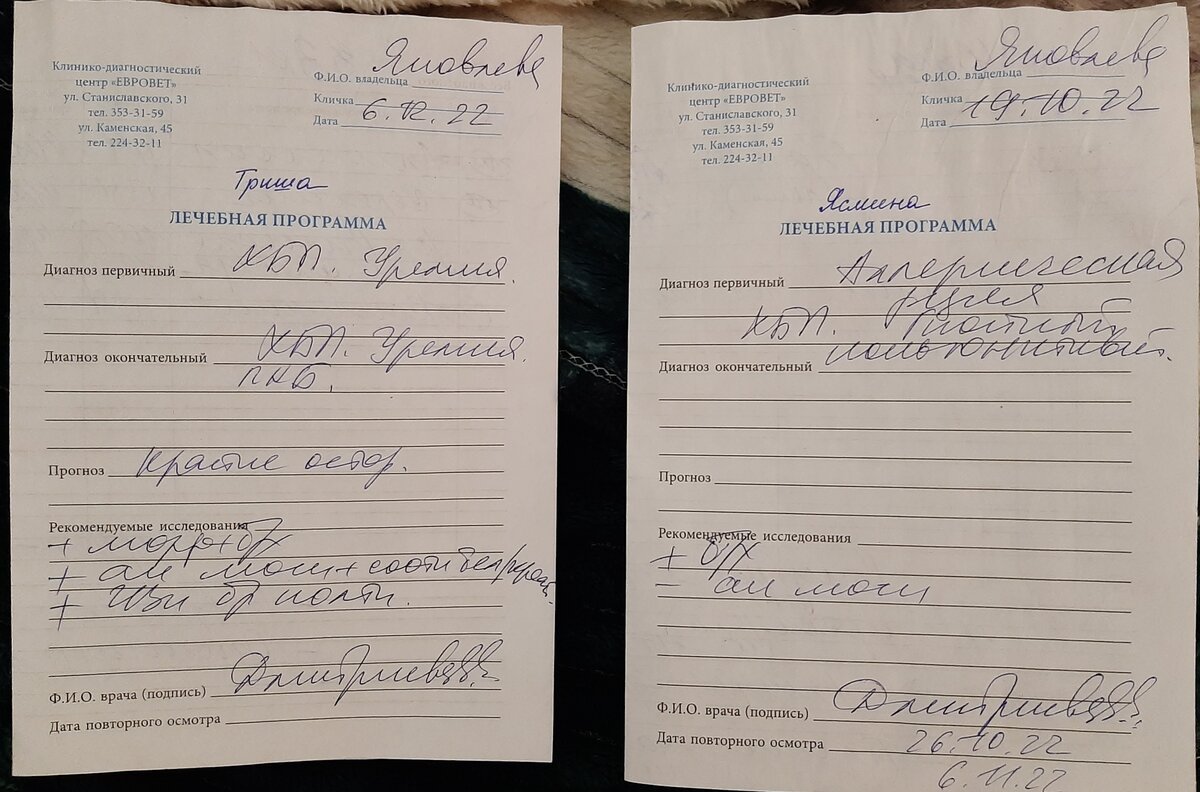 Клинико-диагностический
центр «ЕВРОВЕТ»
ул. Станиславского, 31
тел. 353-31-59
ул. Каменская, 45
тел. 224-32-11
Ф.И.О. владельца Яковлева
Кличка
Дата 6.12.22
Гриша
ЛЕЧЕБНАЯ ПРОГРАММА
Диагноз первичный ХБП. Уремия.
Диагноз окончательный ХБП. Уремия.
Прогноз крайне остор.
Рекомендуемые исследования
+ морф+б/х
+ ан мочи+соотн бел/креат.
+ УЗИ бр полти.
Ф.И.О. врача (подпись)
Дата повторного осмотра
Клинико-диагностический
центр «ЕВРОВЕТ»
ул. Станиславского, 31
тел. 353-31-59
ул. Каменская, 45
тел. 224-32-11
Ф.И.О. владельца Яковлева
Кличка
Дата 19.10.22
Ясмина
ЛЕЧЕБНАЯ ПРОГРАММА
Диагноз первичный Аллергическая
ХБП. Гнойный
конъюнктивит.
Диагноз окончательный
Прогноз
Рекомендуемые исследования
+ б/х
– ан мочи
Ф.И.О. врача (подпись)
Дата повторного осмотра 26.10.22
6.11.22